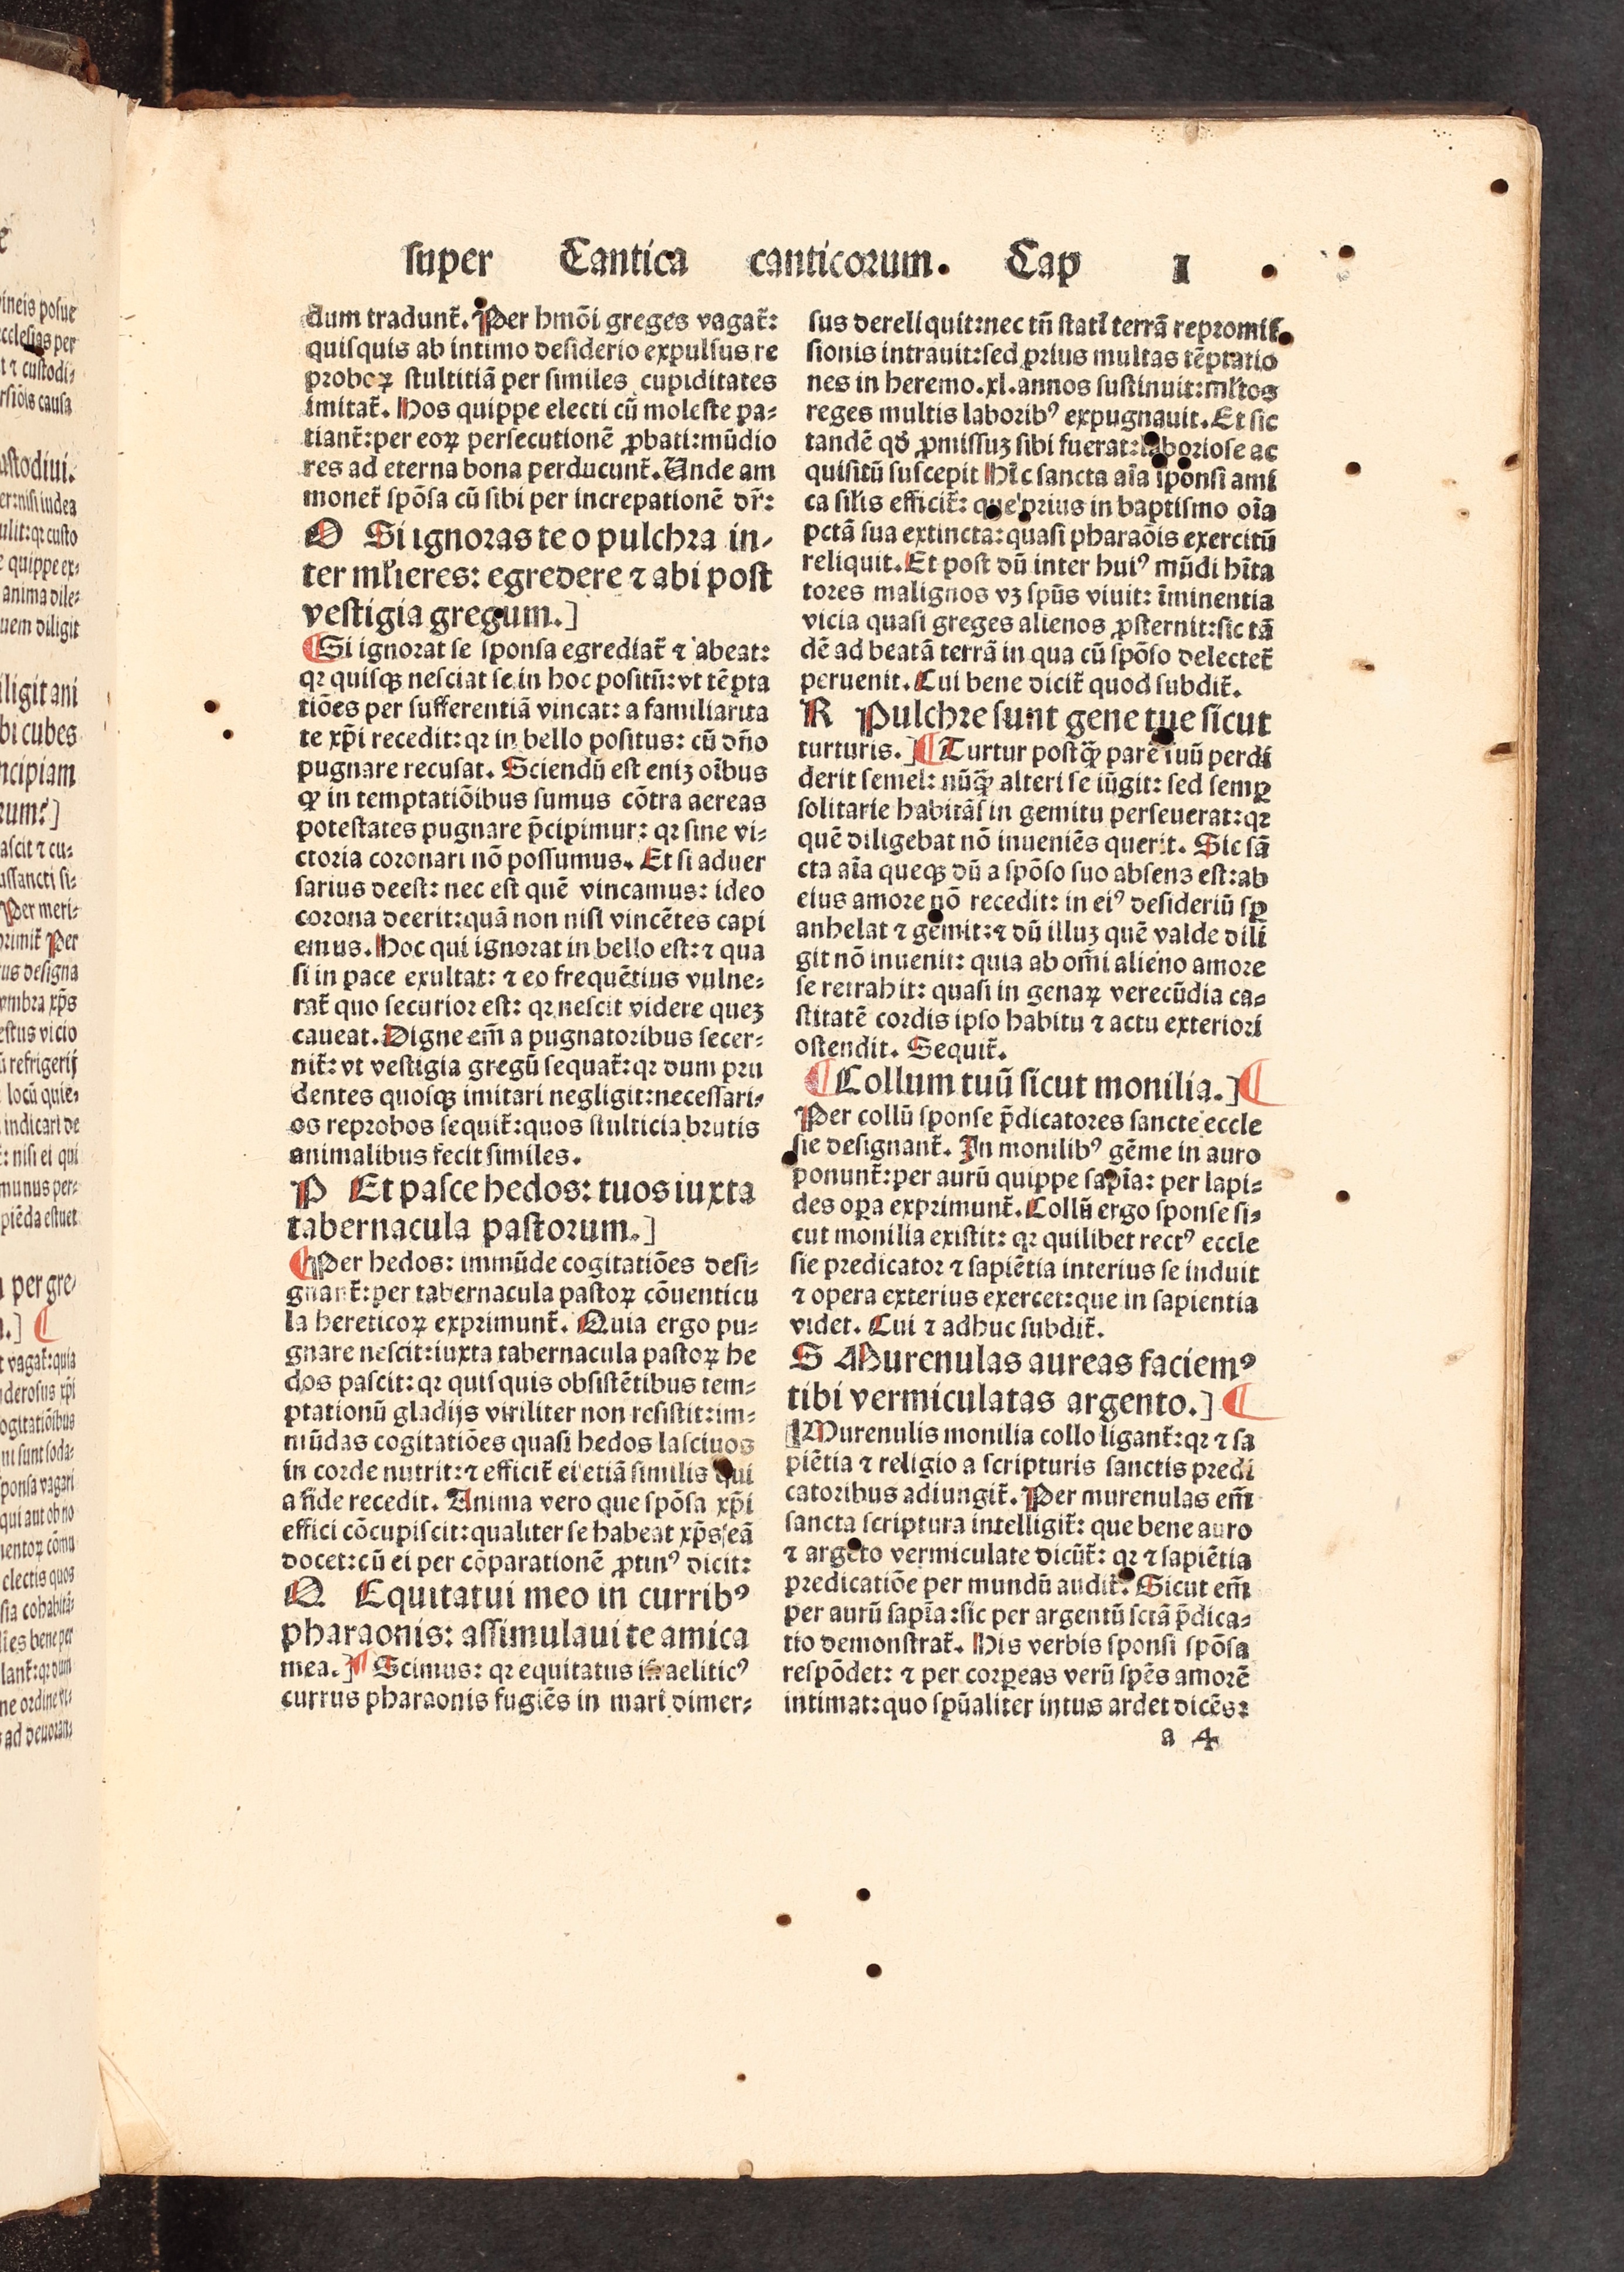 super Cantica canticorum. Cap 1
dum tradunt᷑. Per hmõi greges vagat᷑:
quisquis ab intimo desiderio expulsus re
proboꝝ stultitiã per similes cupiditates
imitat᷑. Hos quippe electi cũ moleste pa-
tiant᷑: per eoꝝ persecutionẽ ꝓbati: mũdio
res ad eterna bona perducunt᷑. Unde am
monet᷑ spõsa cũ sibi per increpationẽ dr̃:
O Si ignoras te o pulchra in-
ter ml̃ieres: egredere ⁊ abi post
vestigia gregum.]
¶ Si ignorat se sponsa egrediat᷑ ⁊ abeat:
qꝛ quisqꝫ nesciat se in hoc positũ: vt tẽpta
tiões per sufferentiã vincat: a familiarita
te xp̃i recedit: qꝛ in bello positus: cũ dño
pugnare recusat. Sciendũ est eniꝫ oĩbus
ꝙ in temptatiõibus sumus cõtra aereas
potestates pugnare p̃cipimur: qꝛ sine vi-
ctoria coronari nõ possumus. Et si aduer
sarius deest: nec est quẽ vincamus: ideo
corona deerit: quã non nisi vincẽtes capi
emus. Hoc qui ignorat in bello est: ⁊ qua
si in pace exultat: ⁊ eo frequẽtius vulne-
rat᷑ quo securior est: qꝛ nescit videre queꝫ
caueat. Digne em̃ a pugnatoribus secer-
nit᷑: vt vestigia gregũ sequat᷑: qꝛ dum pru
dentes quosqꝫ imitari negligit: necessari-
os reprobos sequit᷑: quos stulticia brutis
animalibus fecit similes.
P Et pasce hedos: tuos iuxta
tabernacula pastorum.]
¶ Per hedos: immũde cogitatiões desi-
gnant᷑: per tabernacula pastoꝝ cõuenticu
la hereticoꝝ exprimunt᷑. Quia ergo pu-
gnare nescit: iuxta tabernacula pastoꝝ he
dos pascit: qꝛ quisquis obsistẽtibus tem-
ptationũ gladijs viriliter non resistit: im-
mũdas cogitatiões quasi hedos lasciuos
in corde nutrit: ⁊ efficit᷑ ei etiã similis qui
a fide recedit. Anima vero que spõsa xp̃i
effici cõcupiscit: qualiter se habeat xp̃s eã
docet: cũ ei per cõparationẽ ꝓtinꝰ dicit:
Q Equitatui meo in curribꝰ
pharaonis: assimulaui te amica
mea.] ¶ Scimus: qꝛ equitatus israeliticꝰ
currus pharaonis fugiẽs in mari dimer-
sus dereliquit: nec tñ stati᷑ terrã repromis
sionis intrauit: sed prius multas tẽptatio
nes in heremo. xl. annos sustinuit: ml̃tos
reges multis laboribꝰ expugnauit. Et sic
tandẽ qd̕ ꝓmissuꝫ sibi fuerat: laboriose ac
quisitũ suscepit Hĩc sancta aĩa sponsi ami
ca sil̃is efficit᷑: que prius in baptismo oĩa
pctã sua extincta: quasi pharaõis exercitũ
reliquit. Et post dũ inter huiꝰ mũdi hĩta
tores malignos vꝫ spũs viuit: ĩminentia
vicia quasi greges alienos ꝓsternit: sic tã
dẽ ad beatã terrã in qua cũ spõso delectet᷑
peruenit. Cui bene dicit᷑ quod subdit᷑.
R Pulchre sunt gene tue sicut
turturis.] ¶ Turtur postꝙ̃ parẽ suũ perdi
derit semel: nũꝙ̃ alteri se iũgit: sed semꝑ
solitarie habitãs in gemitu perseuerat: qꝛ
quẽ diligebat nõ inueniẽs querit. Sic sã
cta aĩa queqꝫ dũ a spõso suo absens est: ab
eius amore nõ recedit: in eiꝰ desideriũ sꝑ
anhelat ⁊ gemit: ⁊ dũ illuꝫ quẽ valde dili
git nõ inuenit: quia ab om̃i alieno amore
se retrahit: quasi in genaꝝ verecũdia ca-
stitatẽ cordis ipso habitu ⁊ actu exteriori
ostendit. Sequit᷑.
¶ Collum tuũ sicut monilia.] ¶
Per collũ sponse p̃dicatores sancte eccle
sie designant᷑. In monilibꝰ gẽme in auro
ponunt᷑: per aurũ quippe sapĩa: per lapi-
des oꝑa exprimunt᷑. Collũ ergo sponse si-
cut monilia existit: qꝛ quilibet rectꝰ eccle
sie predicator ⁊ sapiẽtia interius se induit
⁊ opera exterius exercet: que in sapientia
videt. Cui ⁊ adhuc subdit᷑.
S Murenulas aureas faciemꝰ
tibi vermiculatas argento.] ¶
Murenulis monilia collo ligant᷑: qꝛ ⁊ sa
piẽtia ⁊ religio a scripturis sanctis predi
catoribus adiungit᷑. Per murenulas em̃
sancta scriptura intelligit᷑: que bene auro
⁊ argẽto vermiculate dicũt᷑: qꝛ ⁊ sapiẽtia
predicatiõe per mundũ audit᷑. Sicut em̃
per aurũ sapĩa: sic per argentũ sctã p̃dica-
tio demonstrat᷑. His verbis sponsi spõsa
respõdet: ⁊ per corꝑeas verũ spẽs amorẽ
intimat: quo spũaliter intus ardet dicẽs:
a 4